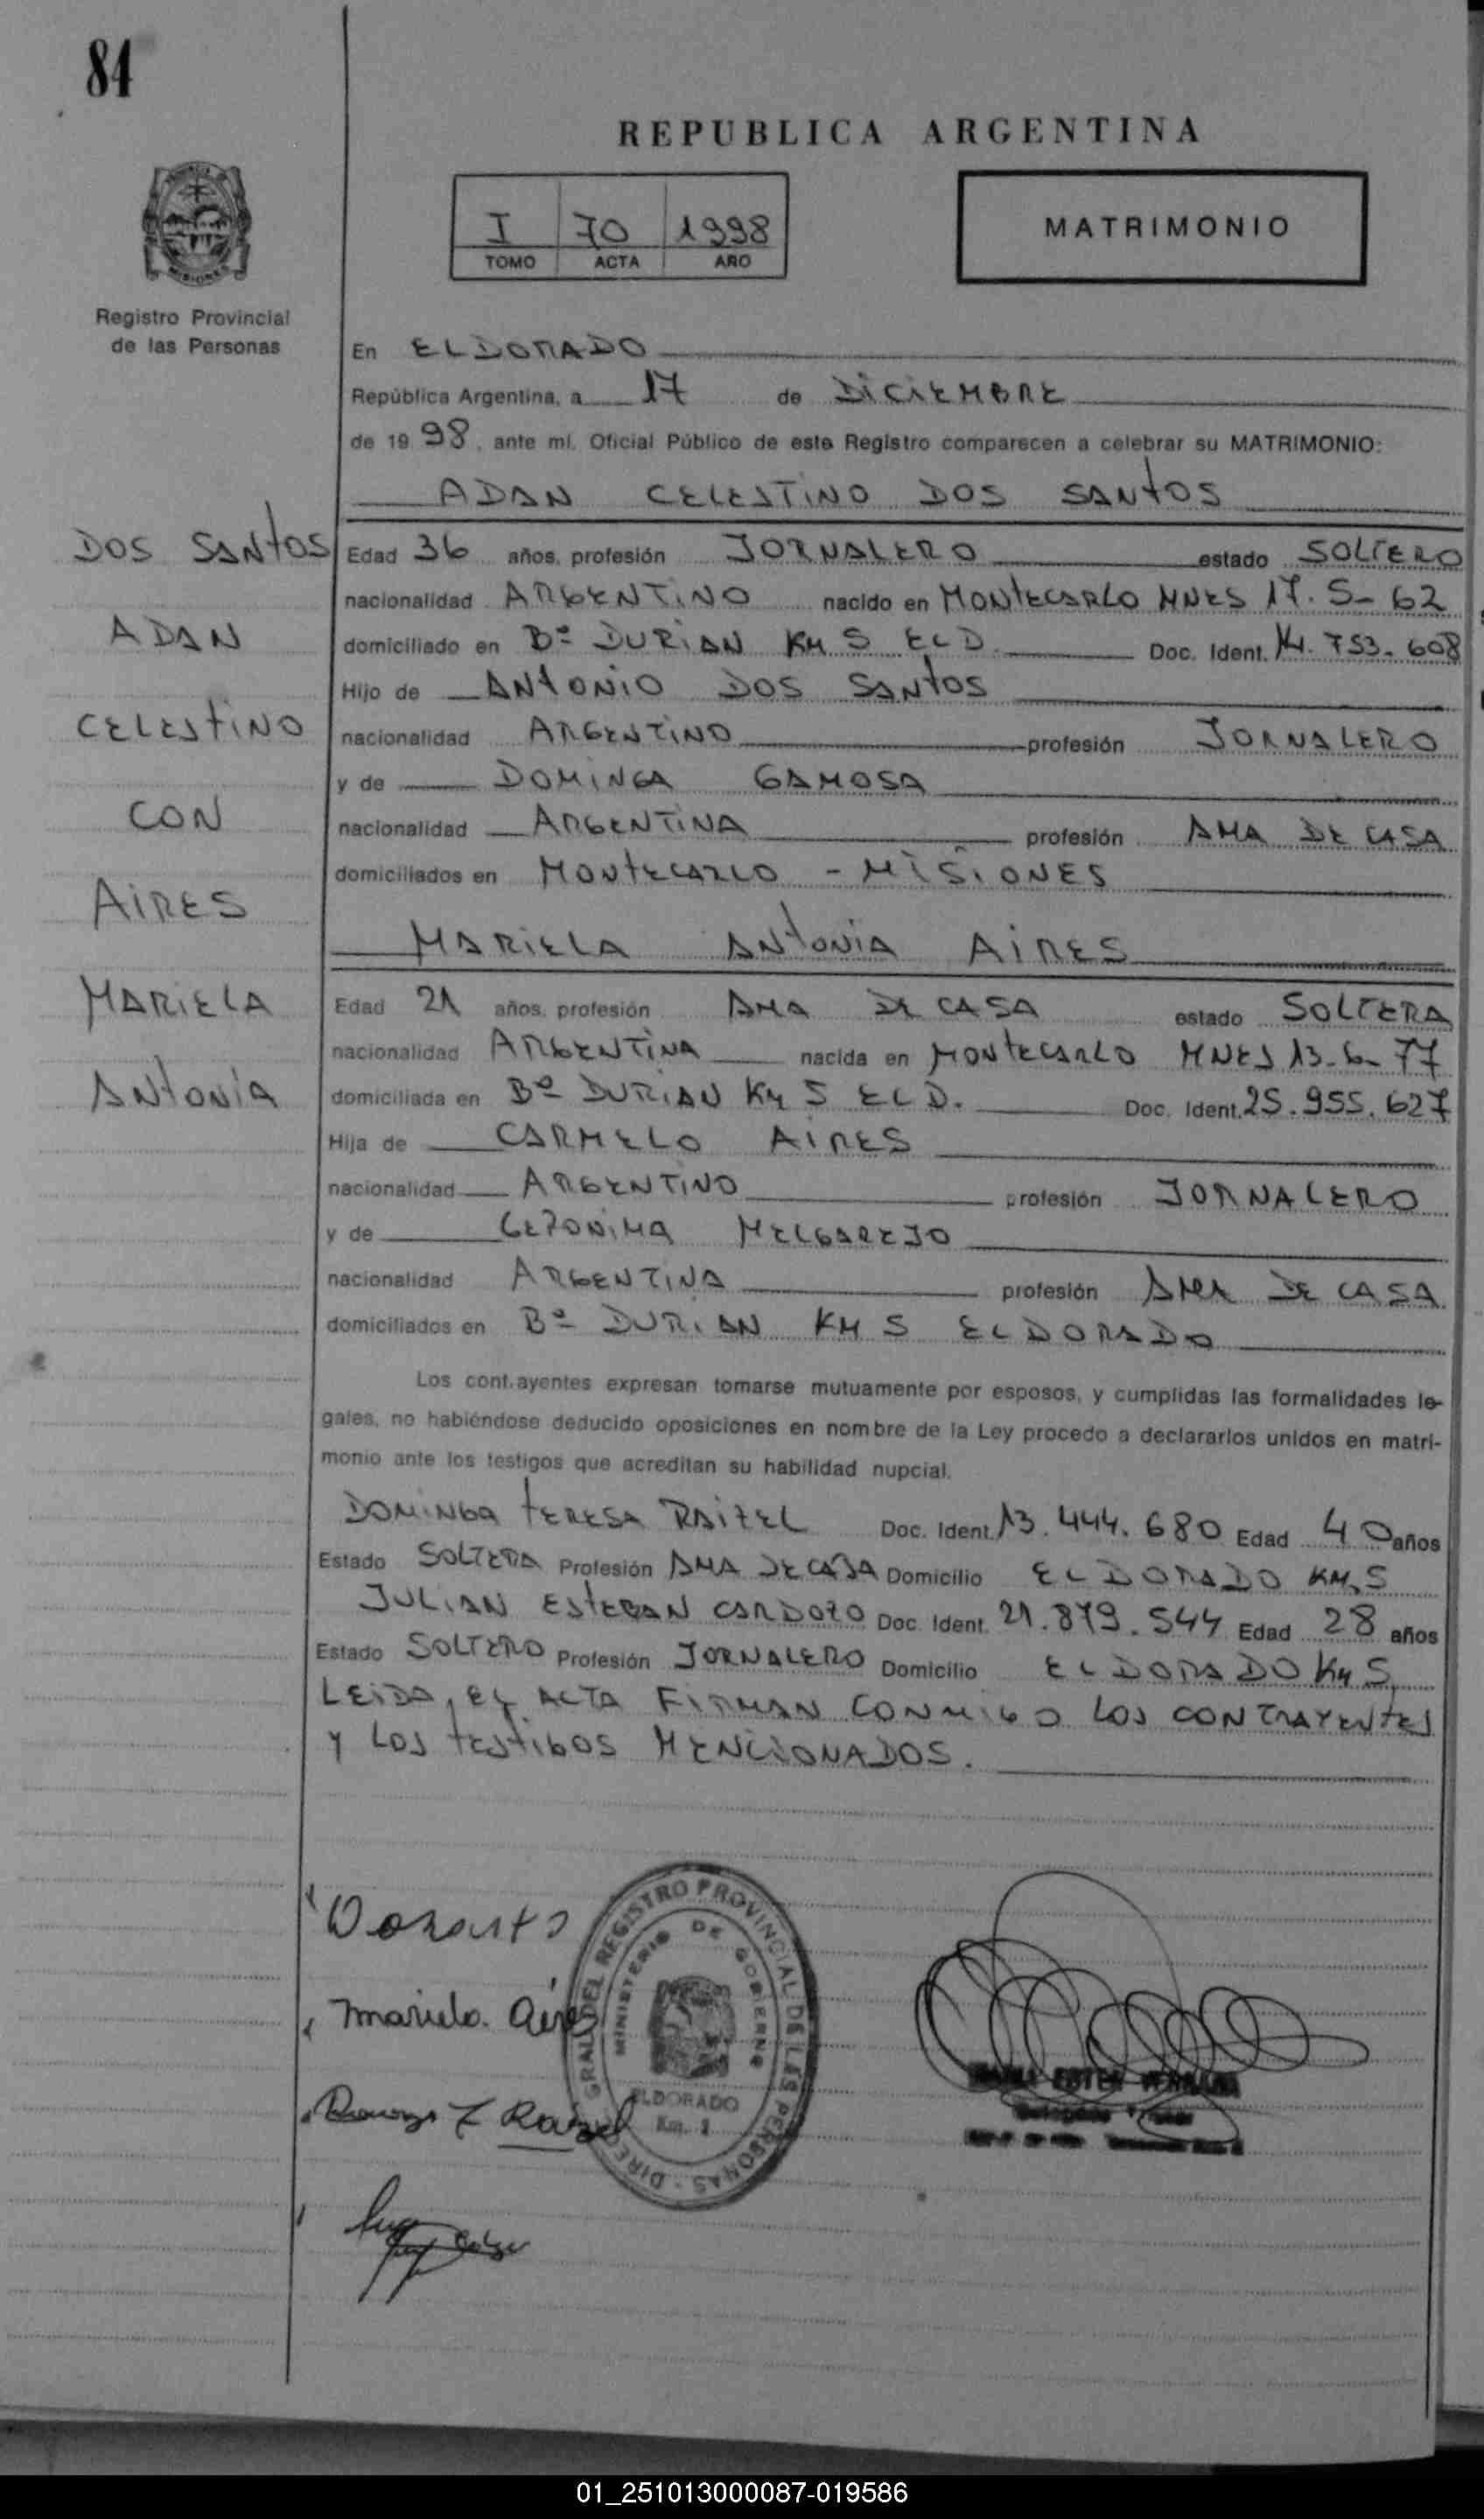 84
REPUBLICA ARGENTINA
I 70 1998
TOMO ACTA AÑO
MATRIMONIO
MISIONES
Registro Provincial
de las Personas
En ELDORADO
República Argentina, a 17 de DICIEMBRE
de 1998, ante mí, Oficial Público de este Registro comparecen a celebrar su MATRIMONIO:
ADAN CELESTINO DOS SANTOS
DOS SANTOS
ADAN
CELESTINO
CON
AIRES
MARIELA
ANTONIA
Edad 36 años, profesión JORNALERO estado SOLTERO
nacionalidad ARGENTINO nacido en MONTECARLO MNES 17.5-62
domiciliado en Bº DURIAN KM 5 ELD. Doc. Ident. 14.753.608
Hijo de ANTONIO DOS SANTOS
nacionalidad ARGENTINO profesión JORNALERO
y de DOMINGA GAMOSA
nacionalidad ARGENTINA profesión AMA DE CASA
domiciliados en MONTECARLO - MISIONES
MARIELA ANTONIA AIRES
Edad 21 años, profesión AMA DE CASA estado SOLTERA
nacionalidad ARGENTINA nacida en MONTECARLO MNES 13-6-77
domiciliada en Bº DURIAN KM 5 ELD. Doc. Ident. 25.955.627
Hija de CARMELO AIRES
nacionalidad ARGENTINO profesión JORNALERO
y de GERONIMA MELGAREJO
nacionalidad ARGENTINA profesión AMA DE CASA
domiciliados en Bº DURIAN KM 5 ELDORADO
Los cont.ayentes expresan tomarse mutuamente por esposos, y cumplidas las formalidades le-
gales, no habiéndose deducido oposiciones en nombre de la Ley procedo a declararlos unidos en matri-
monio ante los testigos que acreditan su habilidad nupcial.
DOMINGA TERESA RAITEL Doc. Ident. 13.444.680 Edad 40 años
Estado SOLTERA Profesión AMA DE CASA Domicilio ELDORADO KM.5
JULIAN ESTEBAN CARDOZO Doc. Ident. 21.879.544 Edad 28 años
Estado SOLTERO Profesión JORNALERO Domicilio ELDORADO KM 5
LEIDA, EL ACTA FIRMAN CONMIGO LOS CONTRAYENTES
Y LOS TESTIGOS MENCIONADOS.
Mariela. Aires
DIREC GRAL DEL REGISTRO PROVINCIAL DE LAS PERSONAS
MINISTERIO DE GOBIERNO
ELDORADO
Km.
01_251013000087-019586